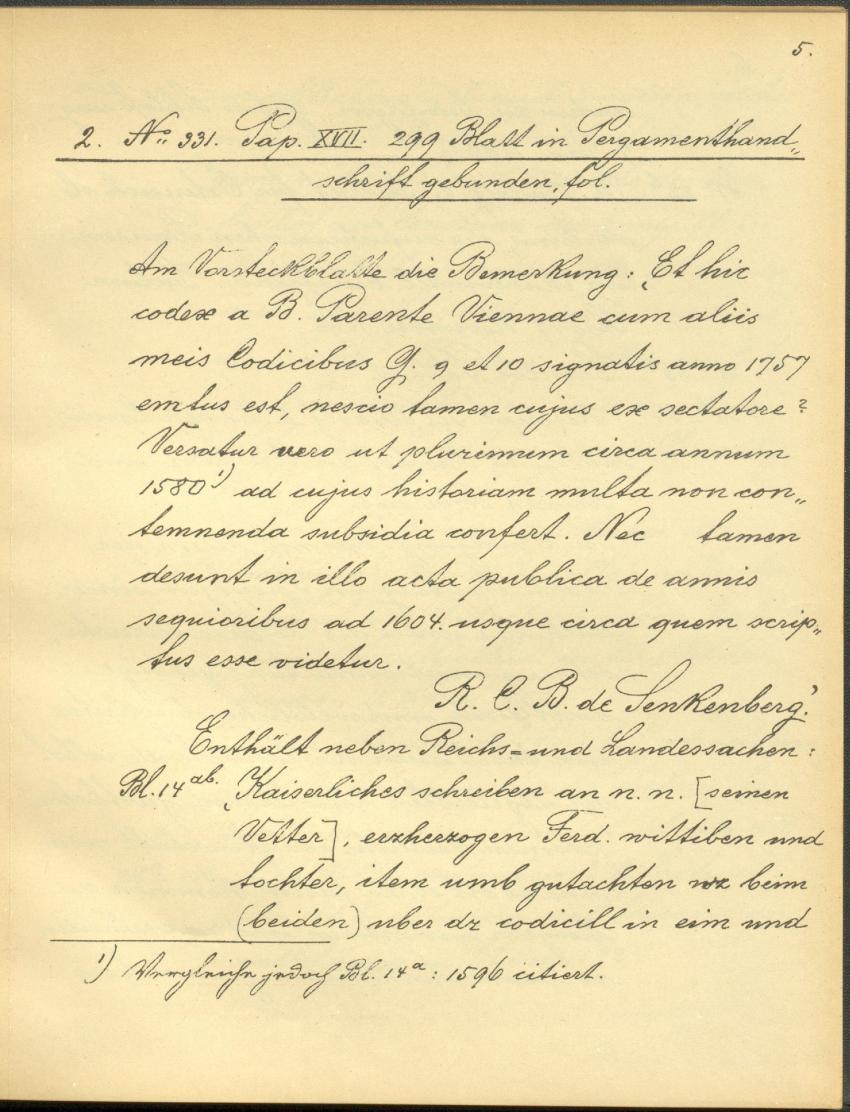 5.
2. No: 331. Pap. XVII. 299 Blatt in Pergamenthand„
schrift gebunden, fol.
Am Vorsteckblatte die Bemerkung: ‚Et hic
codex a B. Parente Viennae cum aliis
meis Codicibus G. 9 et 10 signatis anno 1757
emtus est, nescio tamen cujus ex sectatore?
Versatur vero ut plurimum circa annum
1580¹) ad cujus historiam multa non con„
temnenda subsidia confert. Nec tamen
desunt in illo acta publica de annis
sequioribus ad 1604. usque circa quem scrip„
tus esse videtur.
R. C. B. de Senkenberg.’
Enthält neben Reichs= und Landessachen:
Bl. 14ᵃᵇ. ‚Kaiserliches schreiben an n. n. [seinen
Vetter], erzherzogen Ferd. wittiben und
tochter, item umb gutachten wz beim
(beiden) uber dz codicill in eim und
¹) Vergleiche jedoch Bl. 14ᵃ: 1596 citiert.